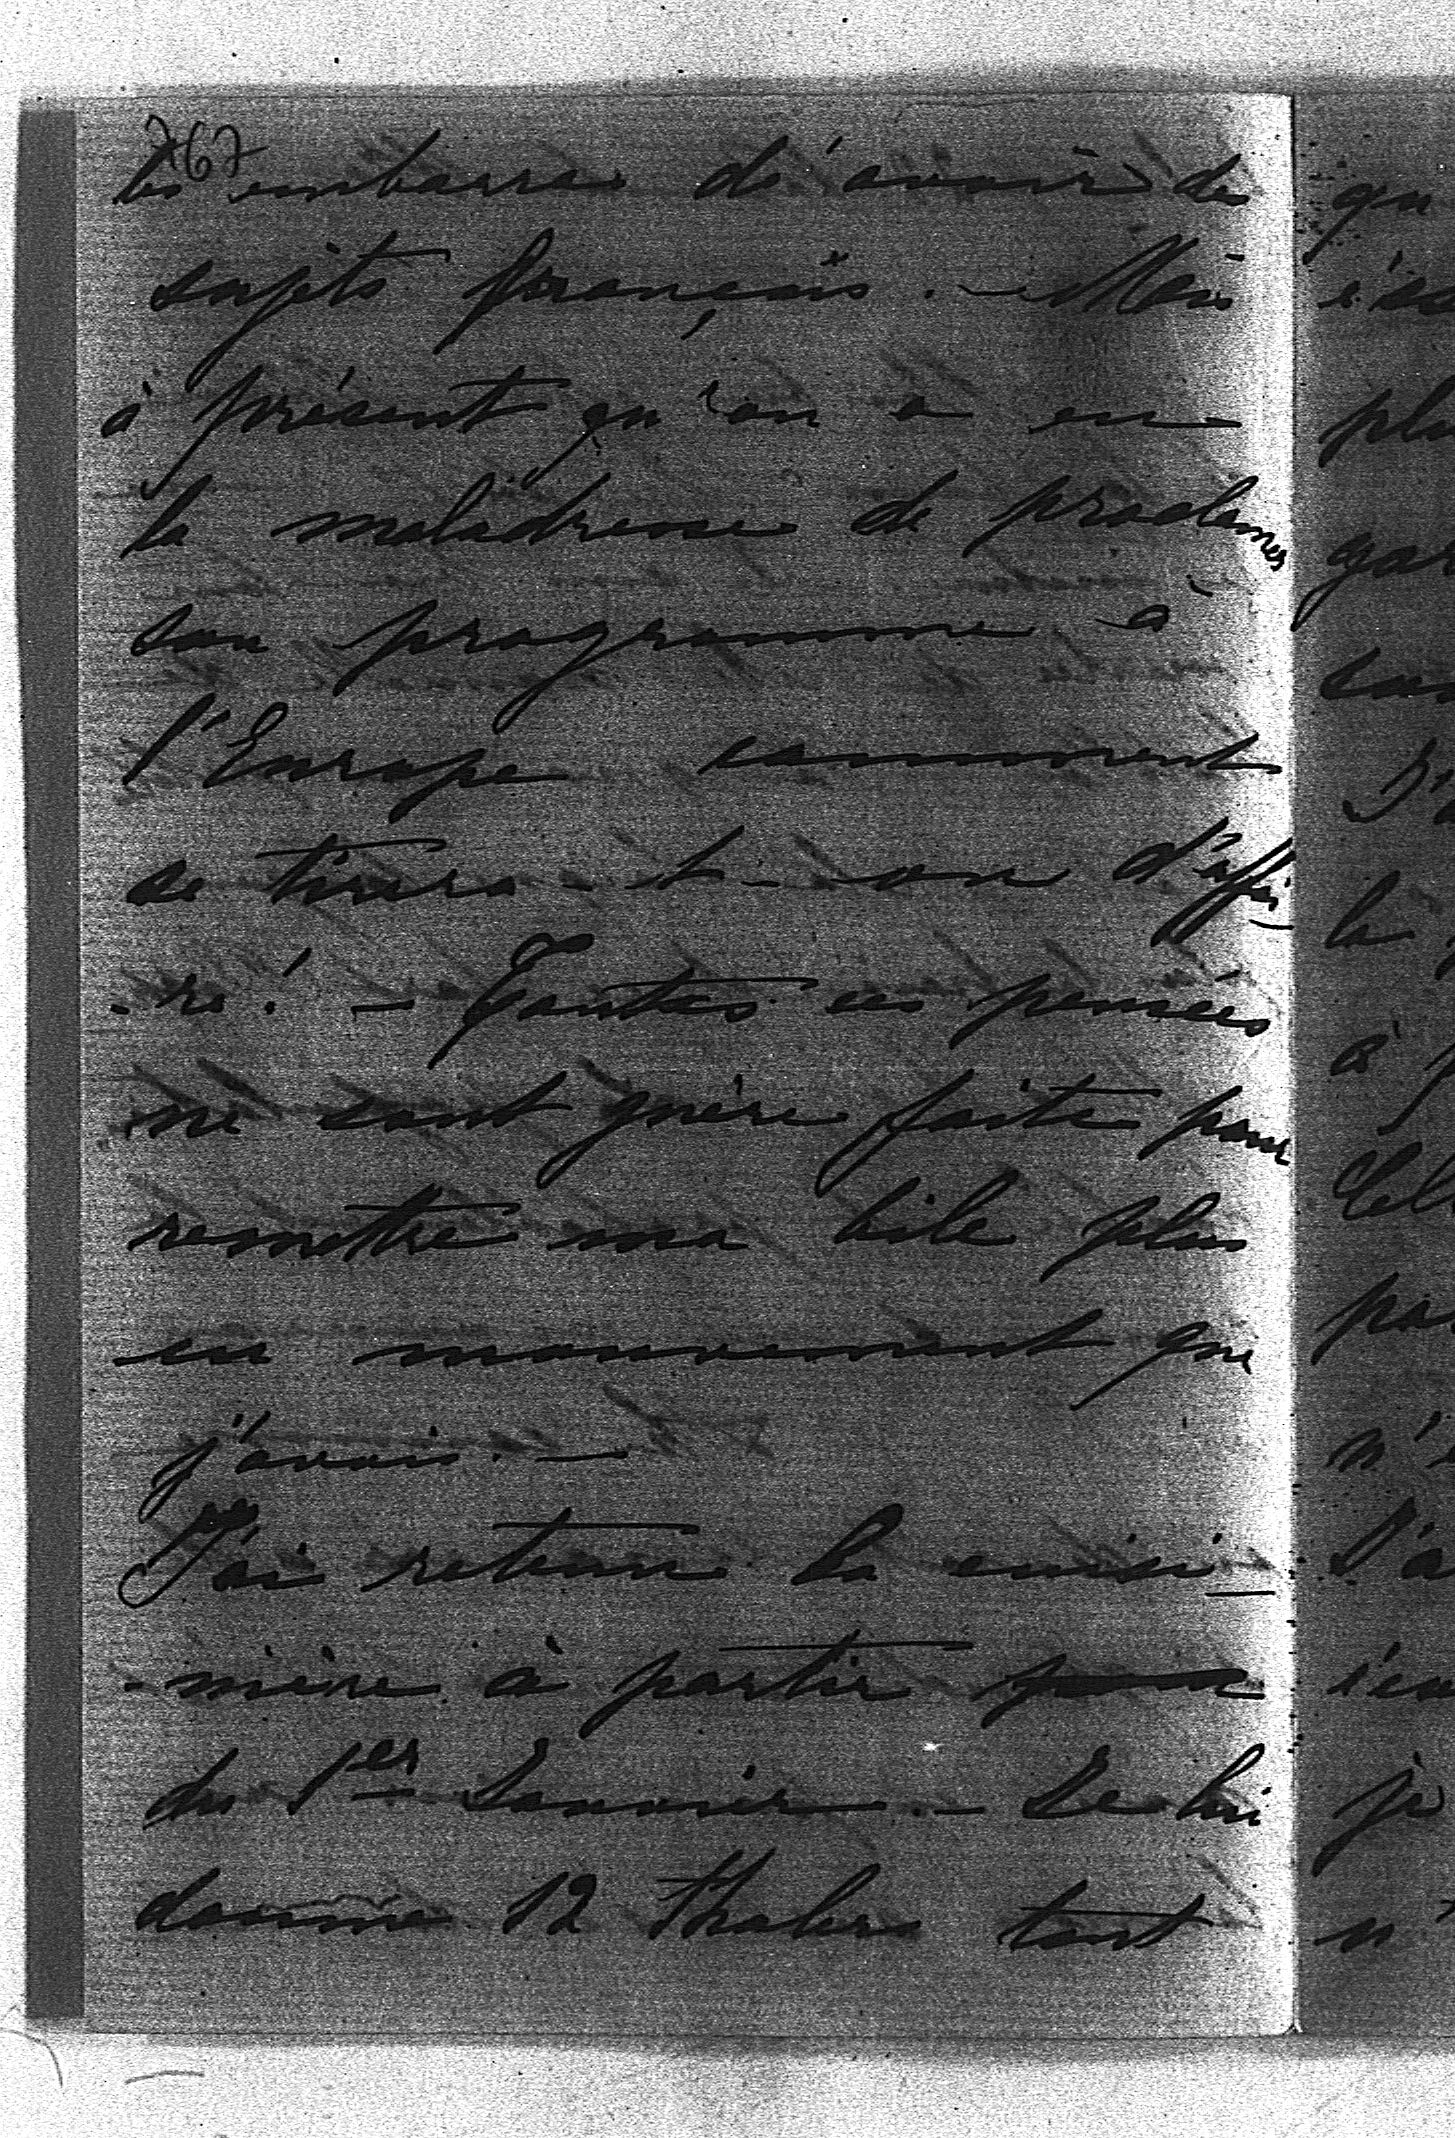 767
les embarras d'avoir des
sujets français. - Mais
à présent qu'on a eu
la maladresse de proclamer
son programme à
l'Europe comment
se tirera-t-on d'affai-
-re! - Toutes ces pensées
ne sont guère faites pour
remettre ma bile plus
en mouvement que
j'avais. -
J'ai retenu la cuisi-
-nière à partir
du 1er Janvier. - Je lui
donne 12 Thalers tout